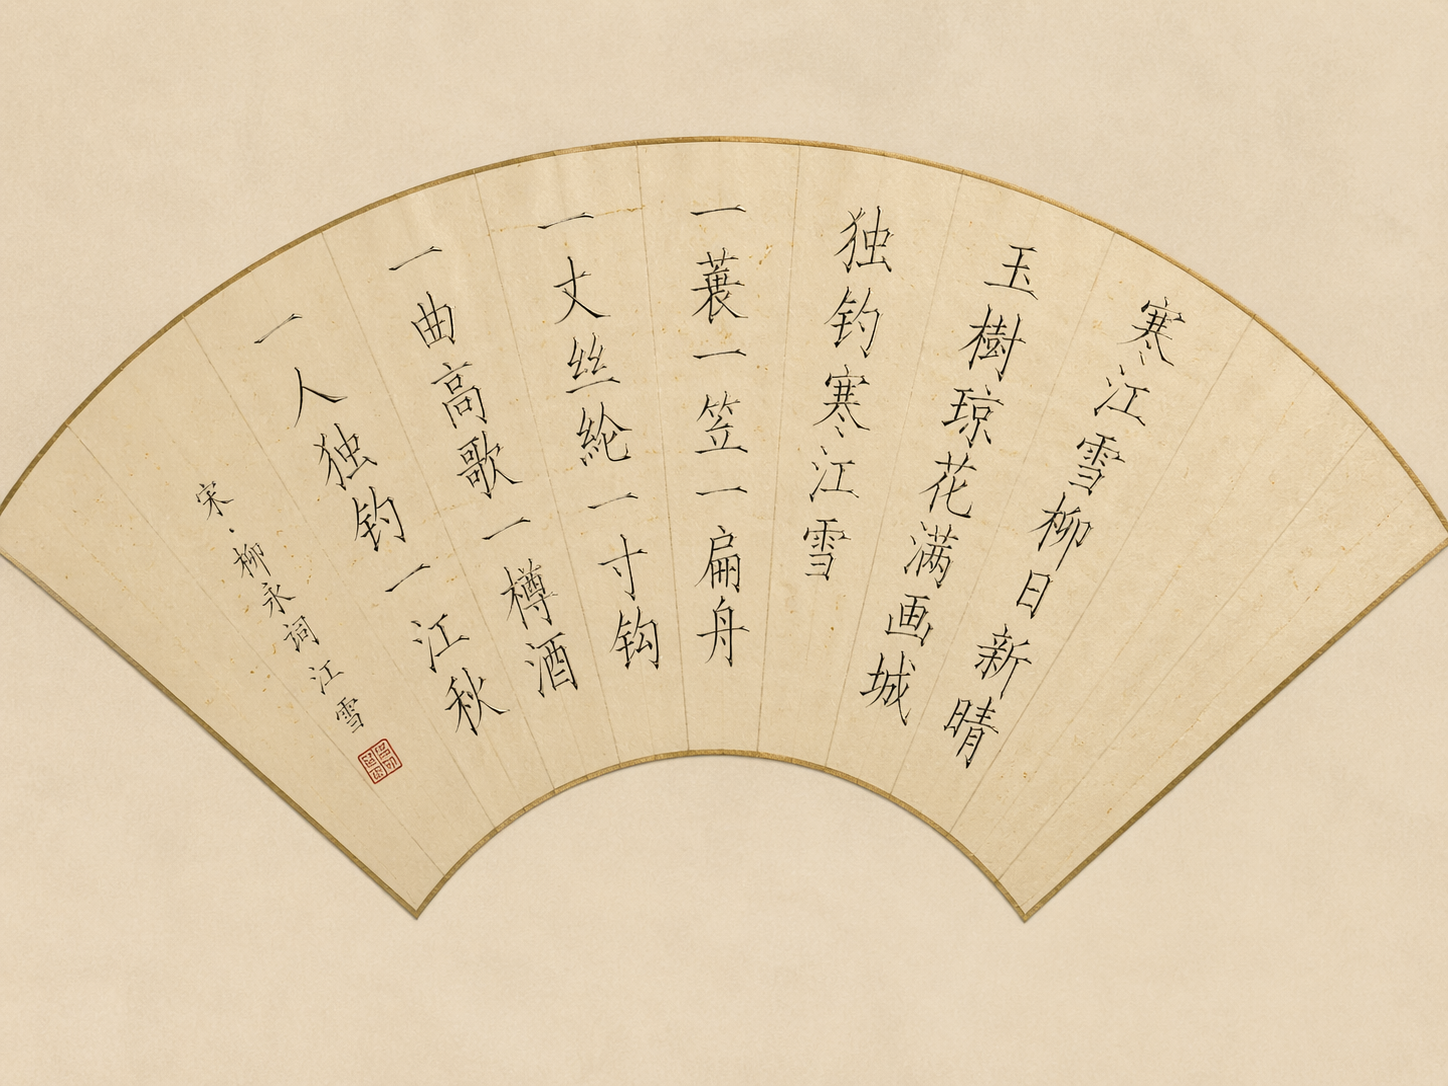 寒江雪柳日新晴
玉樹琼花满画城
独钓寒江雪
一蓑一笠一扁舟
一丈丝纶一寸钩
一曲高歌一樽酒
一人独钓一江秋
宋·柳永词江雪